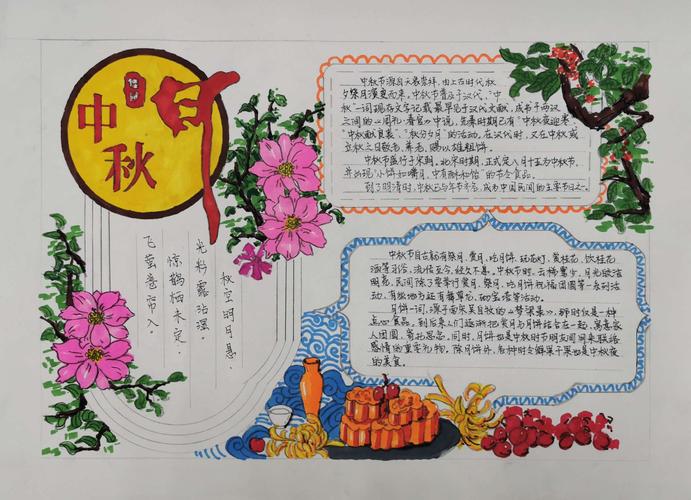 中秋
月
秋空明月悬,
光彩露沾湿.
惊鹊栖未定,
飞萤卷帘入.
中秋节源自天象崇拜,由上古时代秋
夕祭月演变而来.中秋节普及于汉代,"中
秋"一词现存文字记载最早见于汉代文献,成书于两汉
之间的《周礼·春官》中说,先秦时期已有"中秋夜迎寒"、
"中秋献良裘"、"秋分夕月"的活动.在汉代时,又在中秋或
立秋之日敬老、养老,赐以雄粗饼.
中秋节盛行于宋朝,北宋时期,正式定八月十五为中秋节,
并出现"小饼如嚼月,中有酥和饴"的节令食品.
到了明清时,中秋已与年节齐名,成为中国民间的主要节日之一.
中秋节自古就有祭月、赏月、吃月饼、玩花灯、赏桂花、饮桂花
酒等习俗,流传至今,经久不息.中秋节时,云稀雾少,月光皎洁
明亮,民间除了要举行赏月、祭月、吃月饼祝福团圆等一系列活
动,有些地方还有舞草龙、砌宝塔等活动.
月饼一词,源于南宋吴自牧的《梦梁录》,那时仅是一种
点心食品.到后来人们逐渐把赏月与月饼结合在一起,寓意家
人团圆,寄托思念.同时,月饼也是中秋时节朋友间用来联络
感情的重要礼物.除月饼外,各种时令鲜果干果也是中秋夜
的美食.